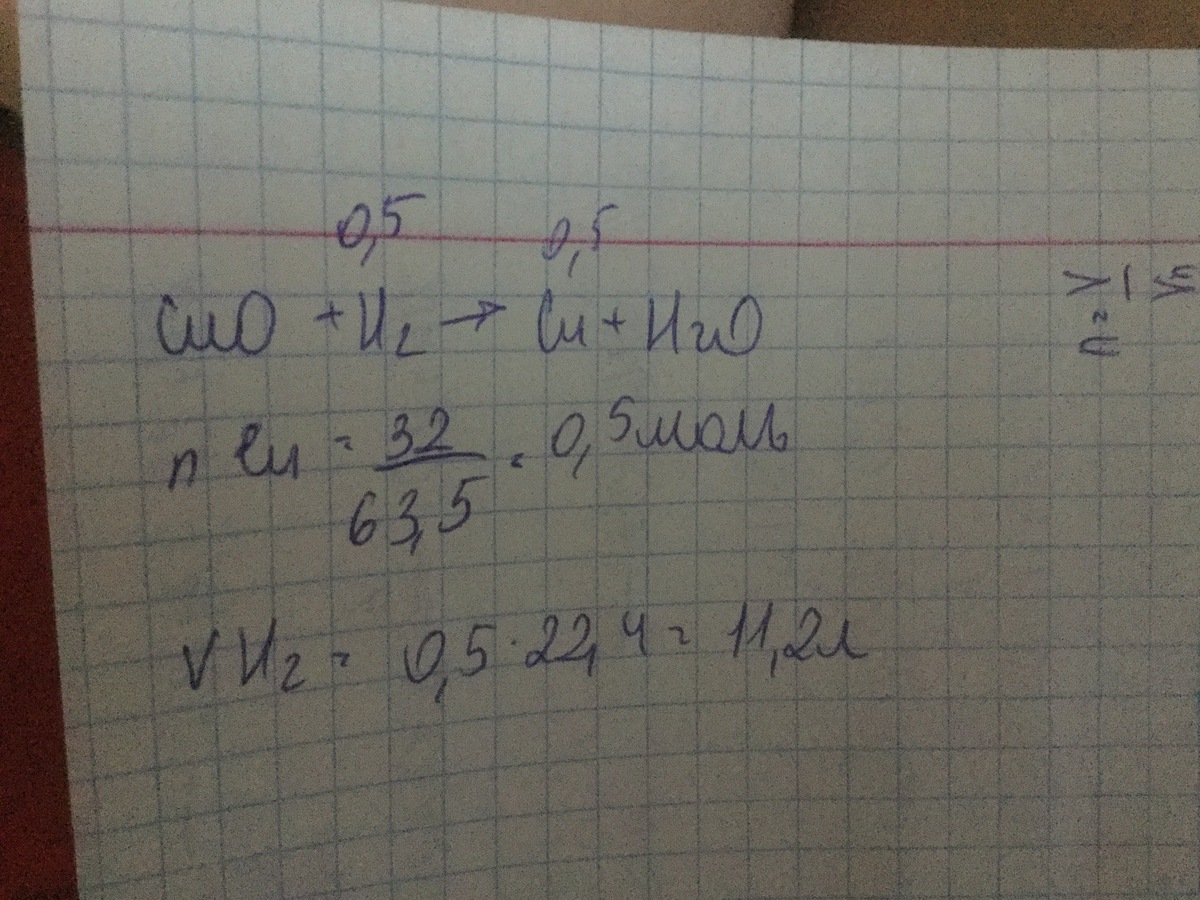 0,5 0,5
CuO + H2 → Cu + H2O
n Cu = 32/63,5 = 0,5 моль
V H2 = 0,5 · 22,4 = 11,2 л
n = V